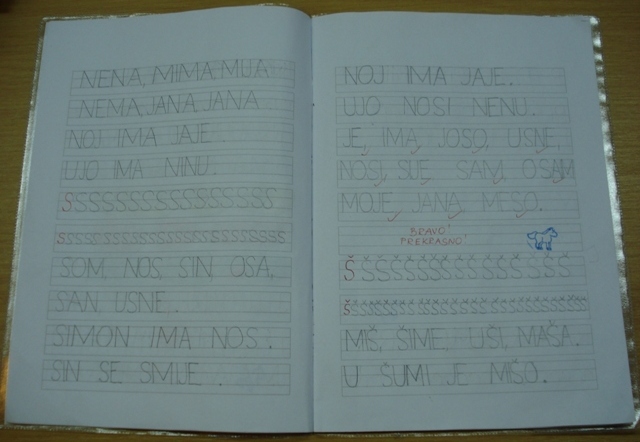 NENA, MIMA, MIJA
NEMA, JANA, JANA
NOJ IMA JAJE.
UJO IMA NINU.
SSSSSSSSSSSSSSSS
SSSSSSSSSSSSSSSSSSSS
SOM, NOS, SIN, OSA,
SAN, USNE,.
SIMON IMA NOS.
SIN SE SMIJE.
NOJ IMA JAJE.
UJO NOSI NENU.
JE, IMA, JOSO, USNE,
NOSI, SIJE SANI, OSAM
MOJE, JANA, MESO.
BRAVO!
PREKRASNO!
ŠŠŠŠŠŠŠŠŠŠŠŠŠŠ
ŠŠŠŠŠŠŠŠŠŠŠŠŠŠŠŠŠŠŠŠŠŠŠŠ
MIŠ, ŠIME, UŠI, MAŠA.
U ŠUMI JE MIŠO.